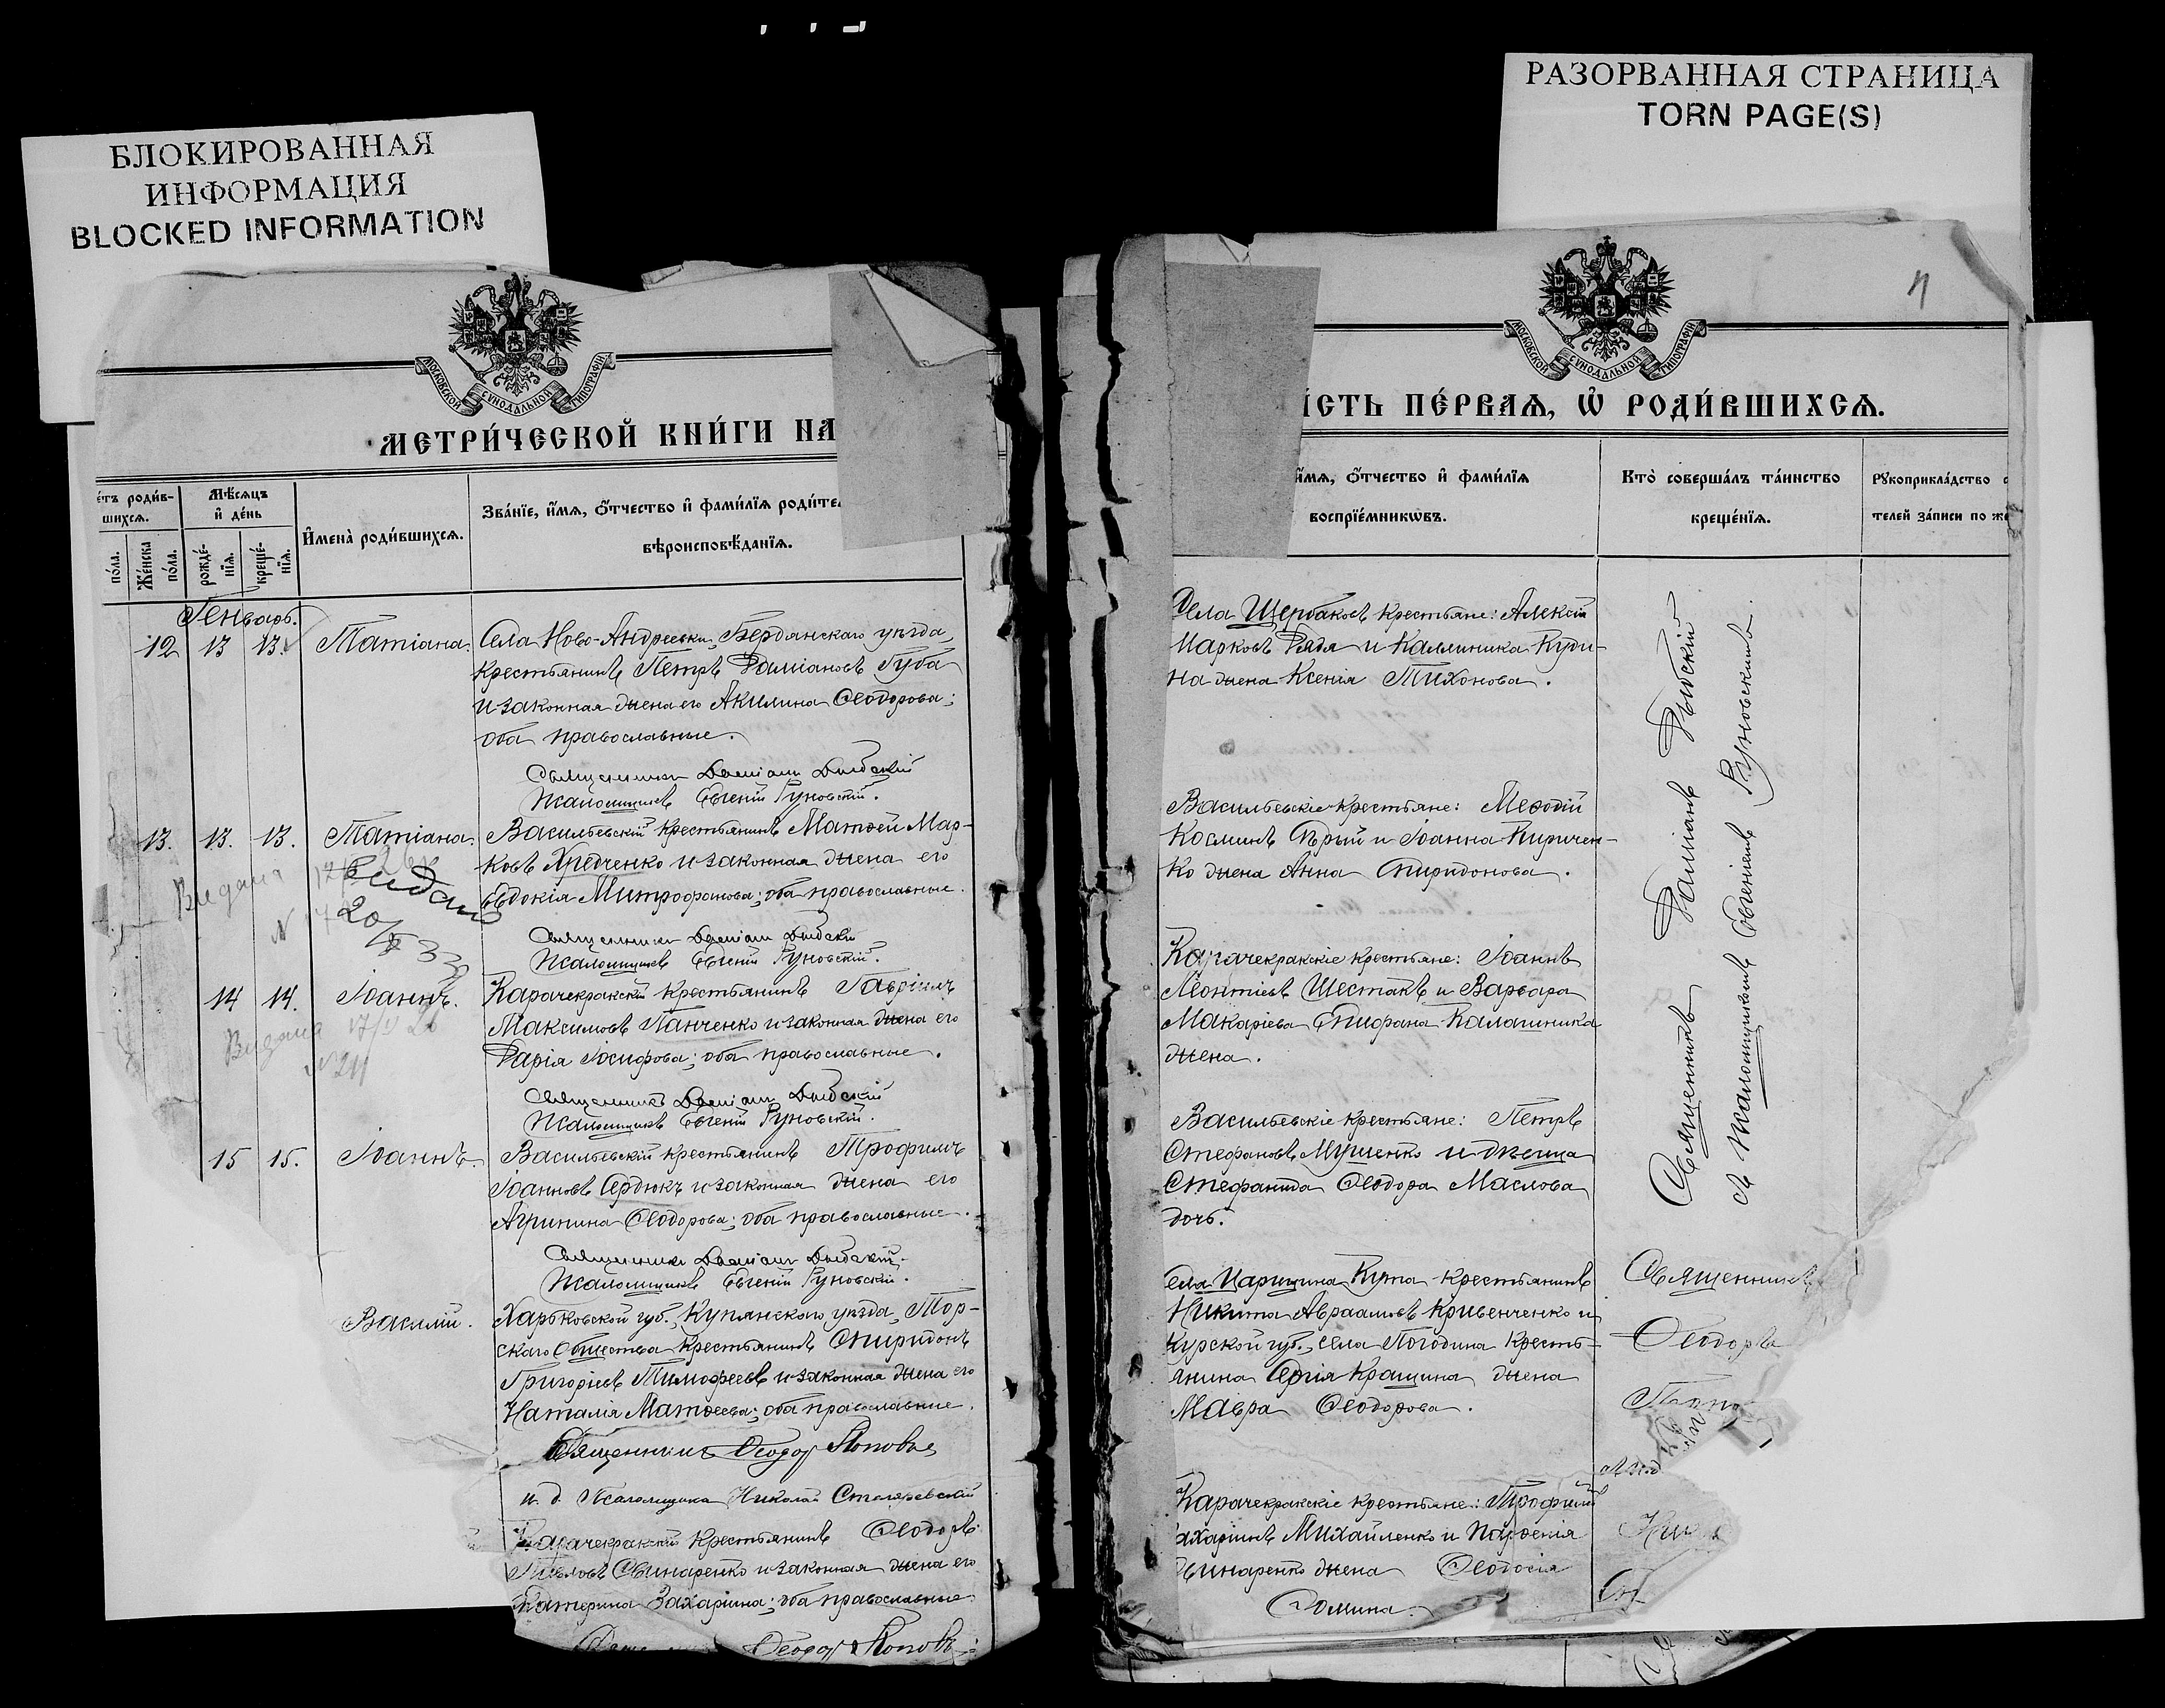 БЛОКИРОВАННАЯ
ИНФОРМАЦИЯ
BLOCKED INFORMATION
РАЗОРВАННАЯ СТРАНИЦА
TORN PAGE(S)
МОСКОВСКОЙ СѴНОДАЛЬНОЙ ТИПОГРАФІИ
МЕТРИ́ЧЕСКОЙ КНИ́ГИ НА
е́тъ роди́в-
шихсѧ.
Мѣ́сѧцъ
и҆ де́нь
по́ла.
Же́нска
по́ла.
рожде́-
нїѧ.
креще́-
нїѧ.
И҆мена̀ роди́вшихсѧ.
Зва́нїе, и҆́мѧ, ѻ҆́тчество и҆ фами́лїѧ роди́те
вѣроисповѣ́данїѧ.
Генварь.
12 13 13. Татіана. Села Ново-Андреевки, Бердянскаго уѣзда,
крестьянинъ Петръ Даміановъ Губа
и законная жена его Акилина Ѳеодорова;
оба православные.
Священникъ Даміанъ
Псаломщикъ Евгеній Руновскій.
13. 13. 13. Татіана. Васильевскій крестьянинъ Матѳей Мар-
ковъ Хредченко и законная жена его
Евдокія Митрофанова; оба православные.
Видана
Видано
20/
Священникъ Даміанъ
Псаломщикъ Евгеній Руновскій.
14 14. Іоаннъ. Карачекракскій крестьянинъ Гавріилъ
Максимовъ Панченко и законная жена его
Дарія Іосифова; оба православные.
Видана 17/
№ 211
Священникъ Даміанъ
Псаломщикъ Евгеній Руновскій.
15 15. Іоаннъ. Васильевскій крестьянинъ Трофимъ
Іоанновъ Сердюкъ и законная жена его
Агрипина Ѳеодорова; оба православные.
Священникъ Даміанъ
Псаломщикъ Евгеній Руновскій.
Василій. Харьковской губ., Купянскаго уѣзда, Тор-
скаго Общества крестьянинъ Спиридонъ
Григоріевъ Тимофеевъ и законная жена его
Наталія Матѳеева; оба православные.
Священникъ Ѳеодоръ Поповъ
и. д. Псаломщика Николай
Карачекракскій крестьянинъ Ѳеодоръ
Свинаренко и законная жена его
Екатерина Захаріина; оба православные
Ѳеодоръ Поповъ
7
МОСКОВСКОЙ СѴНОДАЛЬНОЙ ТИПОГРАФІИ
А́СТЬ ПЕ́РВАѦ, Ѡ҆ РОДИ́ВШИХСѦ.
и҆́мѧ, ѻ҆́тчество и҆ фами́лїѧ
воспрїе́мникѡвъ.
Кто̀ соверша́лъ та́инство
креще́нїѧ.
Рꙋкоприкла́дство с
телей за́писи по же
Села Щербаковъ крестьяне: Алексій
Марковъ Рядя и Каллиника Куди-
на жена Ксенія Тихонова.
Васильевскіе крестьяне: Меѳодій
Косминъ и Іоанна Киричен-
ко жена Анна Спиридонова.
Карачекракскіе крестьяне: Іоаннъ
Леонтіевъ Шестакъ и Варвара
Макаріева Епифана Калашника
жена.
Васильевскіе крестьяне: Петръ
Стефановъ Мушенко и дѣвица
Стефанида Ѳеодора Маслова
дочь.
Священникъ Даміанъ
и Псаломщикъ Евгеній Руновскій.
ела Царицина Кута крестьянинъ
Никита Авраамовъ Кривенченко и
Курской губ., села Погодина кресть-
янина Сергія Кращина жена
Мавра Ѳеодорова.
Священникъ
Ѳеодоръ
Попо
Карачекракскіе крестьяне: Трофимъ
ахаріинъ Михайленко и Парѳенія
винаренко жена Ѳеодосія
Фомина.
Ник